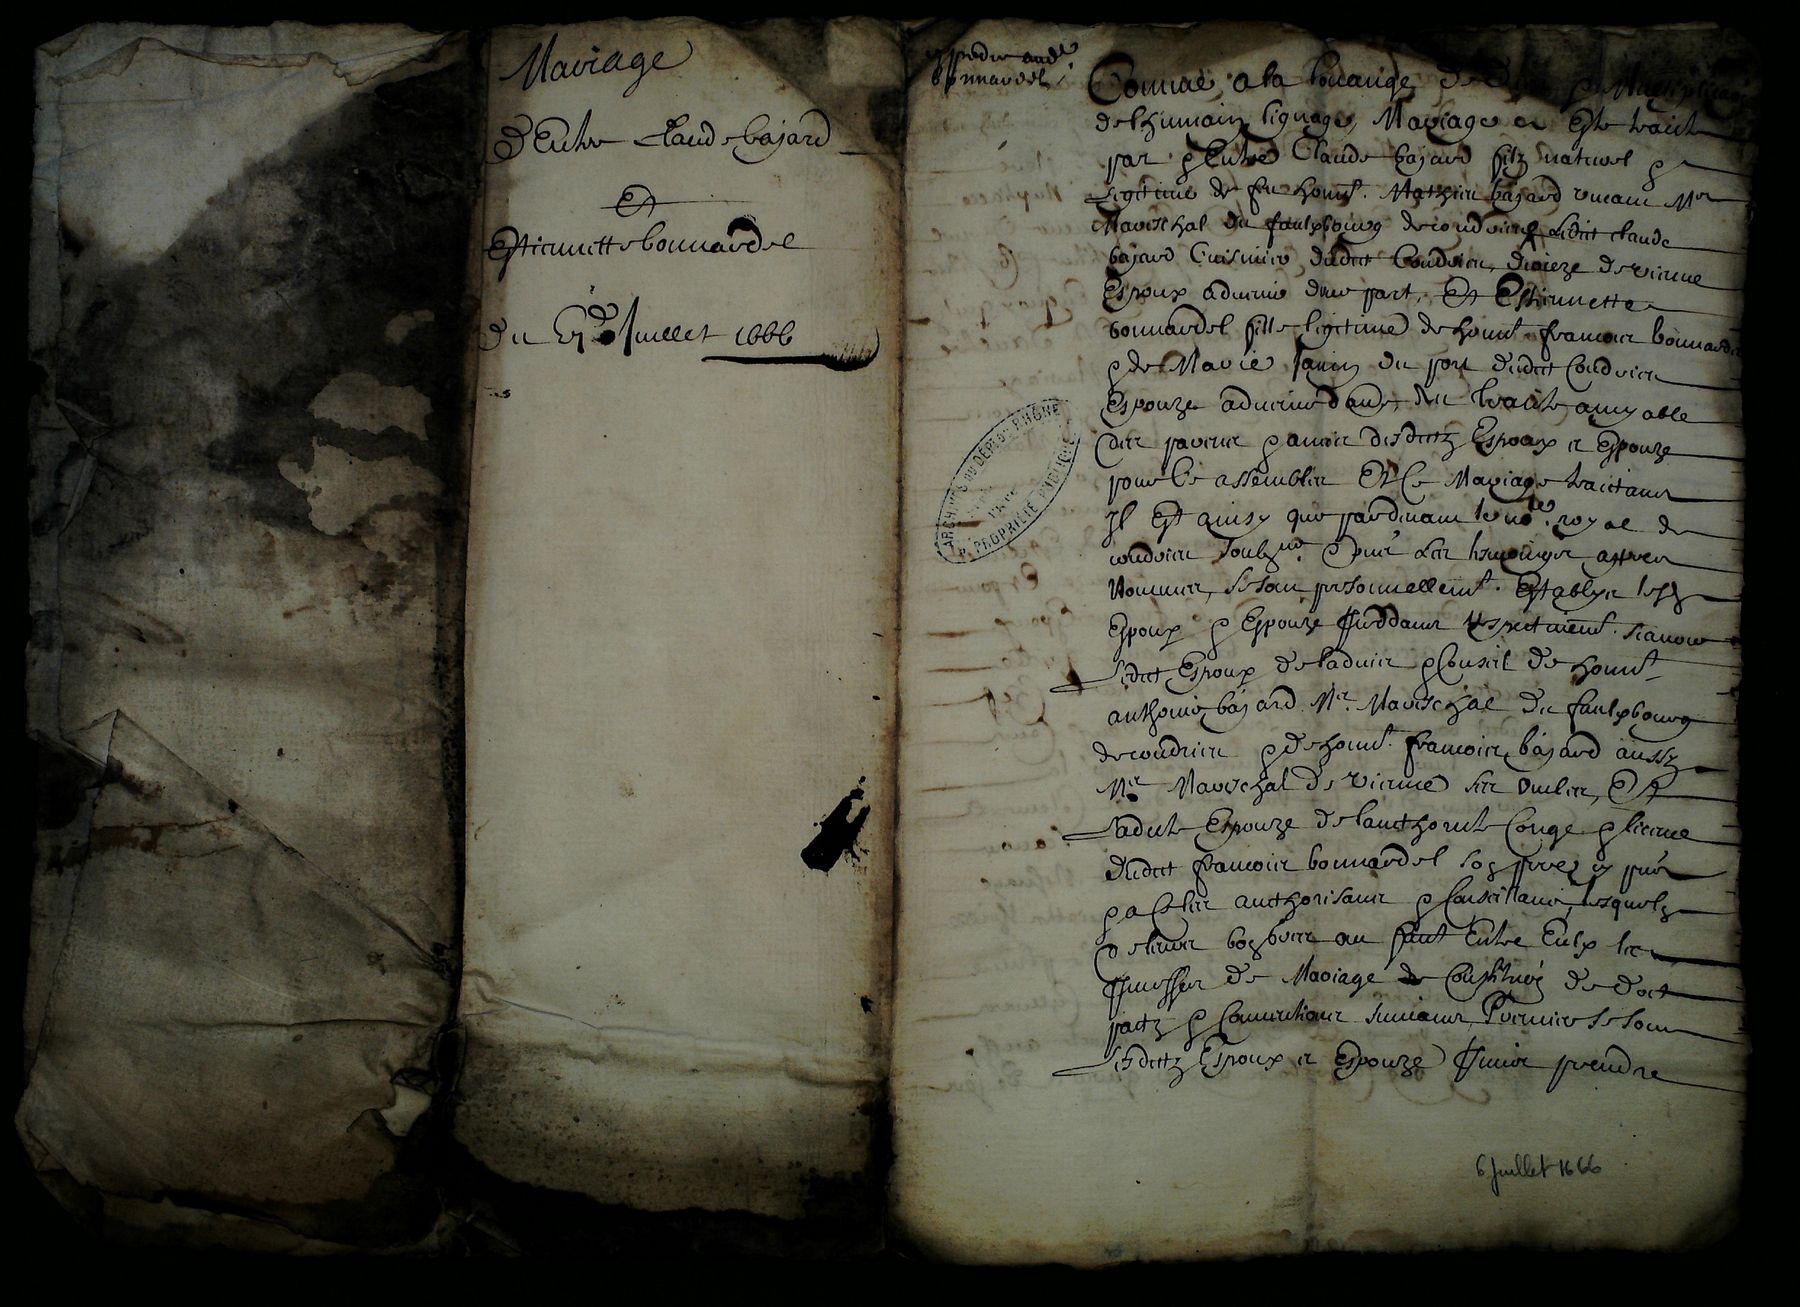 Mariage
D'Entre Claude bajard
Et
Estiennette bonnardel
du Juillet 1666
bonnardel
ARCHIVES DU DEPT DU RHONE
PROPRIÉTÉ PUBLIQUE
Comme a la louange de
de lhumain lignage, Mariage a Esté traicté
par Entre Claude bajard filz naturel
Legitime de feu honn.t Mathieu bajard vivant M.re
Mareschal du faulxbourg de condrieu Ledit claude
bajard Cuisinier dudit Condrieu, dioieze de vienne
Espoux advenir d'une part, Et Estiennette
bonnardel fille legitime de honn.t francois bonnardel
de Marie Janin du port dudit Condrieu
Espouze advenir d'autre, du traicté amyable
des parens amis desditz Espoux et Espouze
pour ce assemblez Et Ce Mariage traictant
Il Est ainsy que pardevant le no.re royal de
condrieu soubz.né les tesmoings appres
Nommez, se sont personnellem.t Establys lesd
Espoux Espouze
Ledit Espoux de l'advis Conseil de honn.t
anthoine bajard M.e Mareschal du faulxbourg
de condrieu de honn.t francois bajard aussy
M.e Mareschal de vienne ses oncles, Et
Ladite Espouze de l'aucthorité Congé licence
dudit francois bonnardel son pere
a Celles aucthorisant Conseillant, lesquelz
de leur bon au Entre Eulx les
de Mariage de Constitu.on de dot
pactz Conventions suivans Premier se sont
Lesditz Espoux et Espouze prendre
6 Juillet 1666